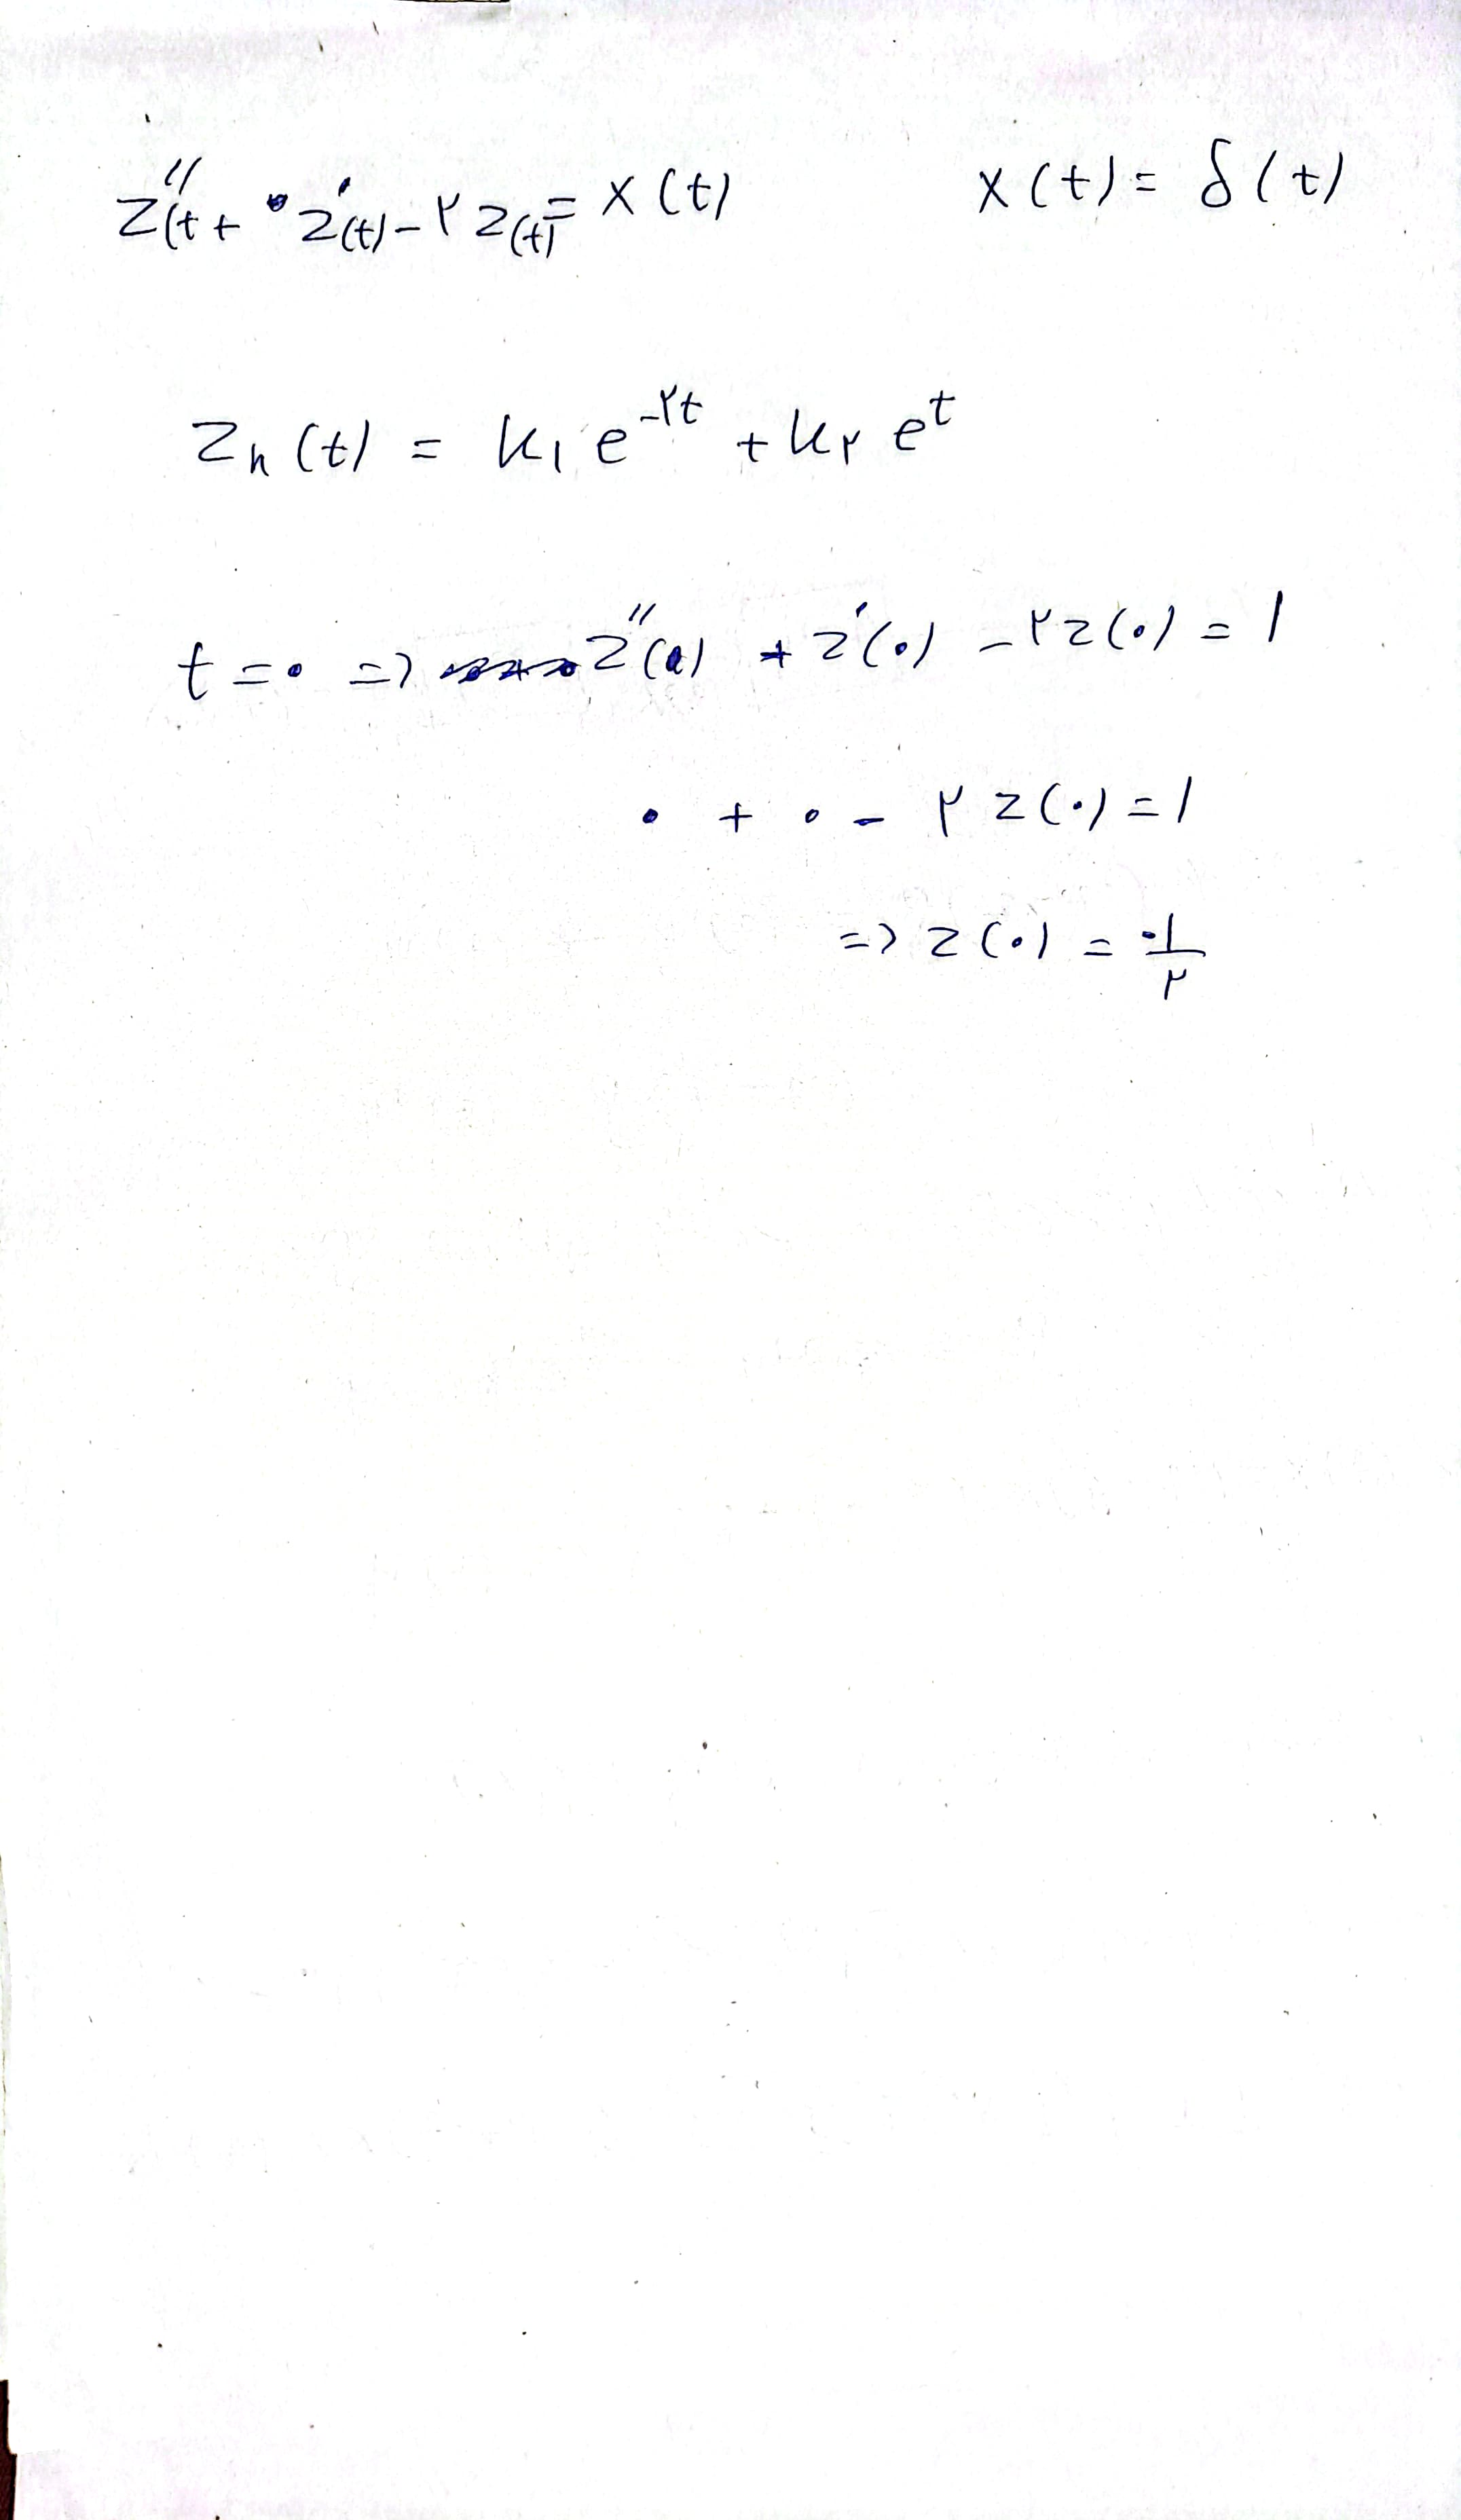 z''(t + z'(t) - ۲ z(t) = x(t) x(t) = δ(t)
z_h(t) = k₁ e^{-۲t} + k_۲ e^t
t = ۰ => z''(۰) + z'(۰) - ۲z(۰) = ۱
۰ + ۰ - ۲ z(۰) = ۱
=> z(۰) = -۱/۲